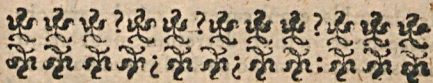 ???
;;: